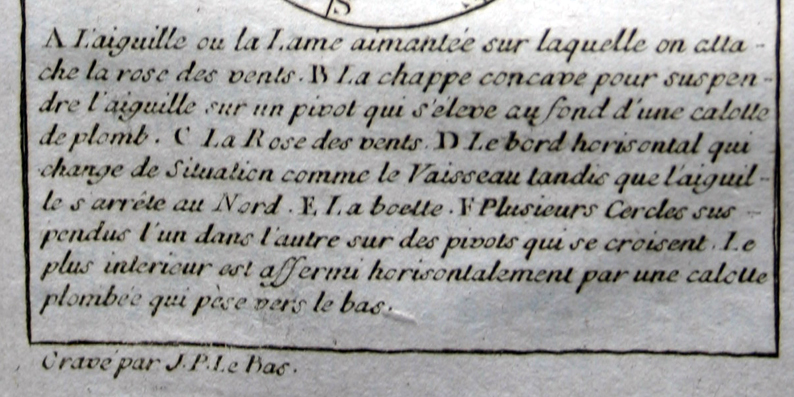 S
A L'aiguille ou la Lame aimantée sur laquelle on atta-
che la rose des vents. B La chappe concave pour suspen-
dre l'aiguille sur un pivot qui s'éleve au fond d'une calotte
de plomb. C La Rose des vents. D Le bord horisontal qui
change de Situation comme le Vaisseau tandis que l'aiguil-
le s'arrête au Nord. E La boette. F Plusieurs Cercles sus-
pendus l'un dans l'autre sur des pivots qui se croisent. Le
plus interieur est affermi horisontalement par une calotte
plombée qui pèse vers le bas.
Gravé par J.P. Le Bas.